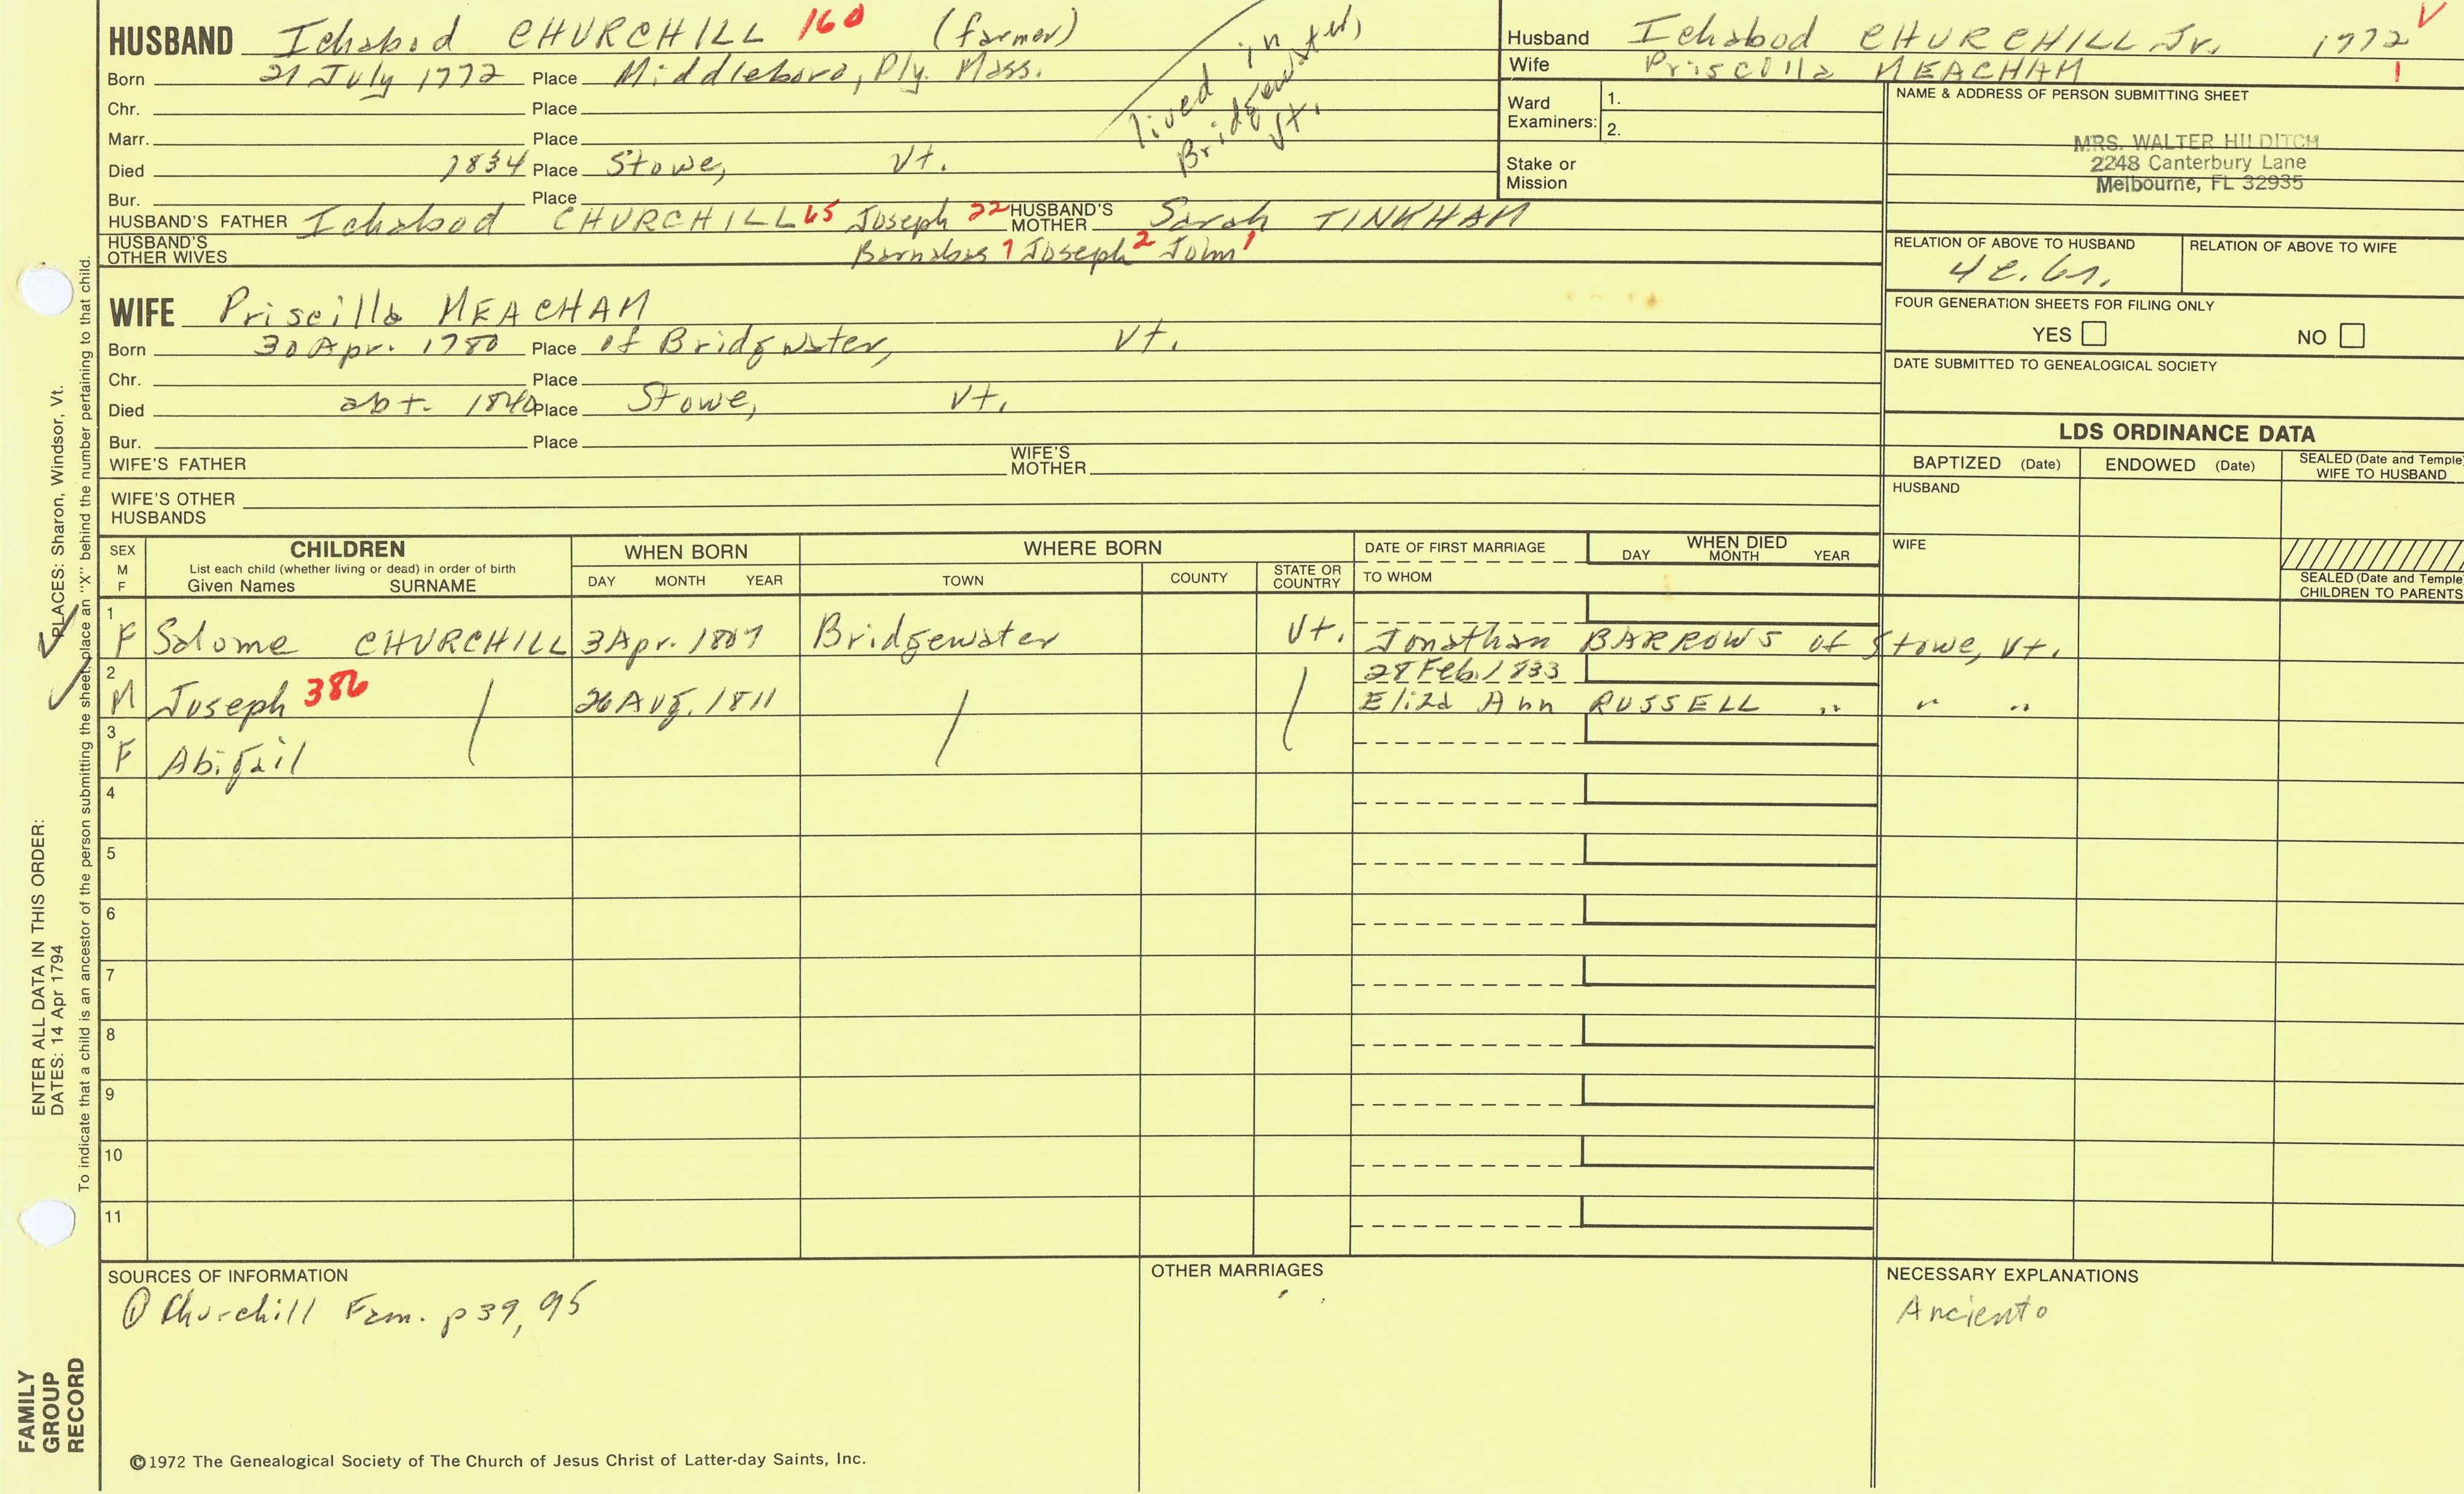 HUSBAND Ichabod CHURCHILL 160 (farmer)
Born 21 July 1772 Place Middleboro, Ply. Mass.
lived in Bridgewater, Vt.
Chr. Place
Marr. Place
Died 1834 Place Stowe, Vt.
Bur. Place
HUSBAND'S FATHER Ichabod CHURCHILL 65 Joseph 22 HUSBAND'S MOTHER Sarah TINKHAM
HUSBAND'S OTHER WIVES Barnabas 7 Joseph 2 John 1
WIFE Priscilla MEACHAM
Born 30 Apr. 1780 Place of Bridgwater, Vt.
Chr. Place
Died abt. 1840 Place Stowe, Vt.
Bur. Place
WIFE'S FATHER WIFE'S MOTHER
WIFE'S OTHER HUSBANDS
Husband Ichabod CHURCHILL Jr. 1772
Wife Priscilla MEACHAM 1
Ward Examiners: 1.
2.
Stake or Mission
NAME & ADDRESS OF PERSON SUBMITTING SHEET
MRS. WALTER HILDITCH
2248 Canterbury Lane
Melbourne, FL 32935
RELATION OF ABOVE TO HUSBAND RELATION OF ABOVE TO WIFE
FOUR GENERATION SHEETS FOR FILING ONLY
YES NO
DATE SUBMITTED TO GENEALOGICAL SOCIETY
LDS ORDINANCE DATA
BAPTIZED (Date) ENDOWED (Date) SEALED (Date and Temple) WIFE TO HUSBAND
HUSBAND
WIFE
SEALED (Date and Temple) CHILDREN TO PARENTS
SEX M F CHILDREN List each child (whether living or dead) in order of birth Given Names SURNAME
WHEN BORN DAY MONTH YEAR
WHERE BORN TOWN COUNTY STATE OR COUNTRY
DATE OF FIRST MARRIAGE TO WHOM
WHEN DIED DAY MONTH YEAR
1 F Salome CHURCHILL 3 Apr. 1807 Bridgewater Vt. Jonathan BARROWS of Stowe, Vt.
28 Feb. 1833
2 M Joseph 386 26 Aug. 1811 Eliza Ann RUSSELL " " "
3 F Abigail
4
5
6
7
8
9
10
11
SOURCES OF INFORMATION
① Churchill Fam. p 39, 95
OTHER MARRIAGES
NECESSARY EXPLANATIONS
Anciento
©1972 The Genealogical Society of The Church of Jesus Christ of Latter-day Saints, Inc.
FAMILY GROUP RECORD
ENTER ALL DATA IN THIS ORDER:
DATES: 14 Apr 1794 PLACES: Sharon, Windsor, Vt.
To indicate that a child is an ancestor of the person submitting the sheet, place an "X" behind the number pertaining to that child.